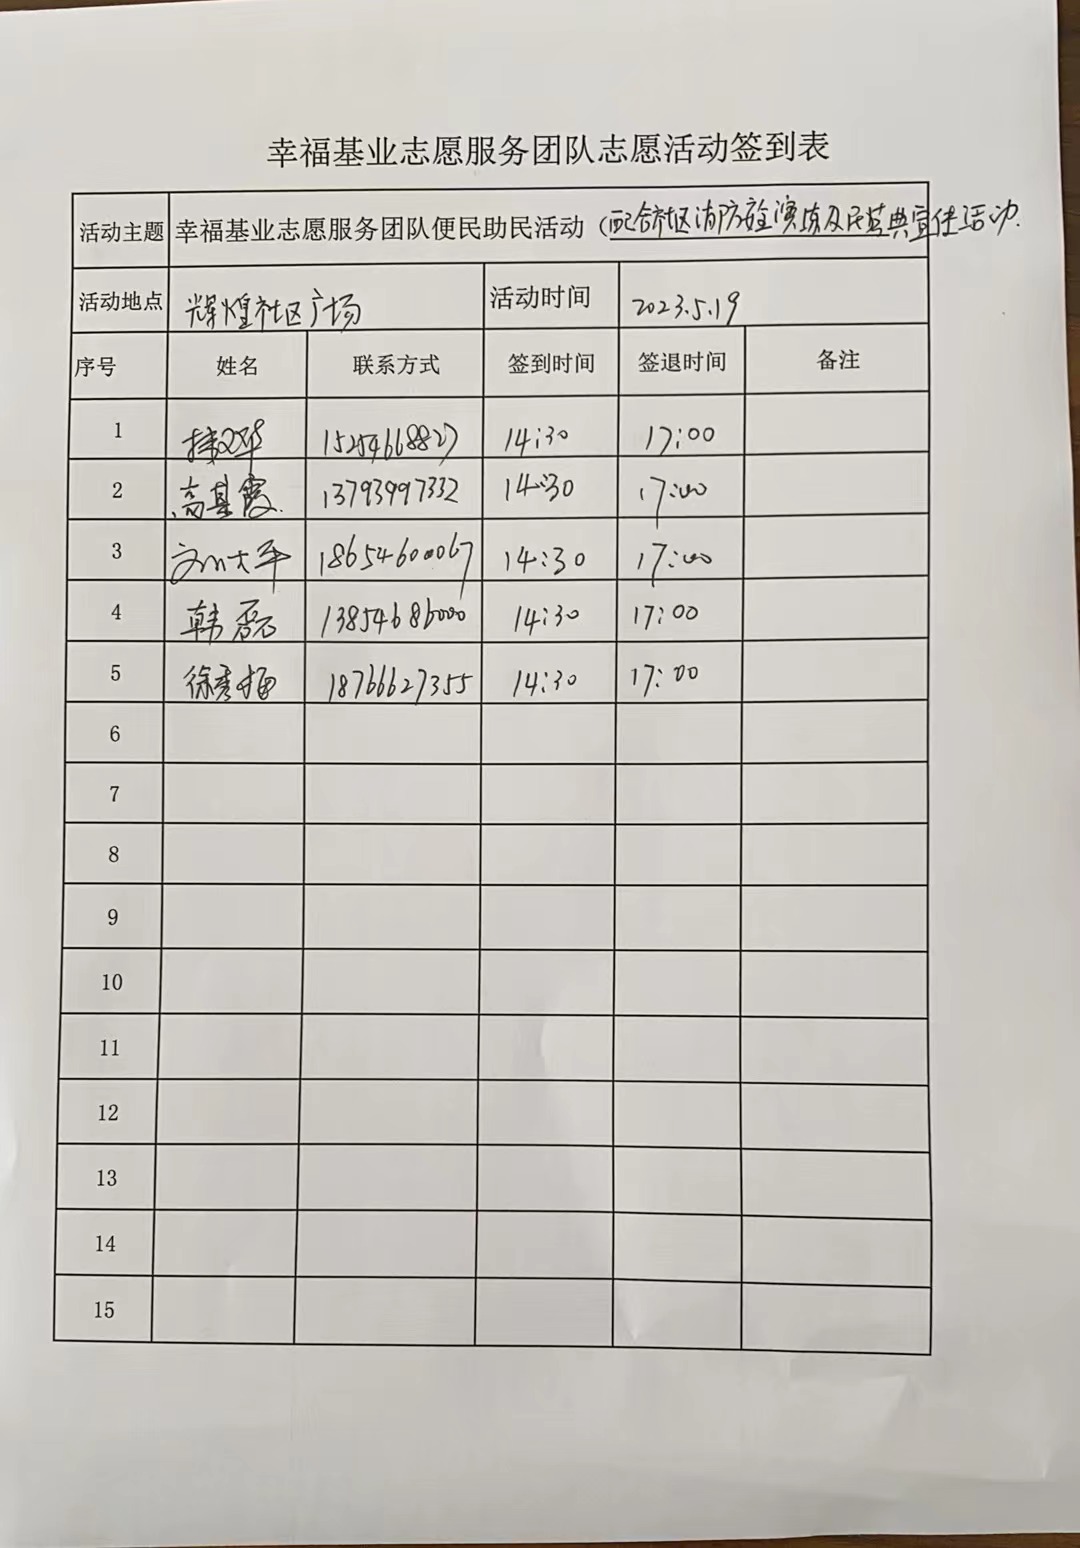 幸福基业志愿服务团队志愿活动签到表
活动主题 幸福基业志愿服务团队便民助民活动（配合社区消防演练及民法典宣传活动.
活动地点 辉煌社区广场 活动时间 2023.5.19
序号 姓名 联系方式 签到时间 签退时间 备注
1 15254668827 14:30 17:00
2 高其霞 13793997332 14:30 17:00
3 18654600067 14:30 17:00
4 韩磊 13854686000 14:30 17:00
5 徐秀梅 18766627355 14:30 17:00
6
7
8
9
10
11
12
13
14
15